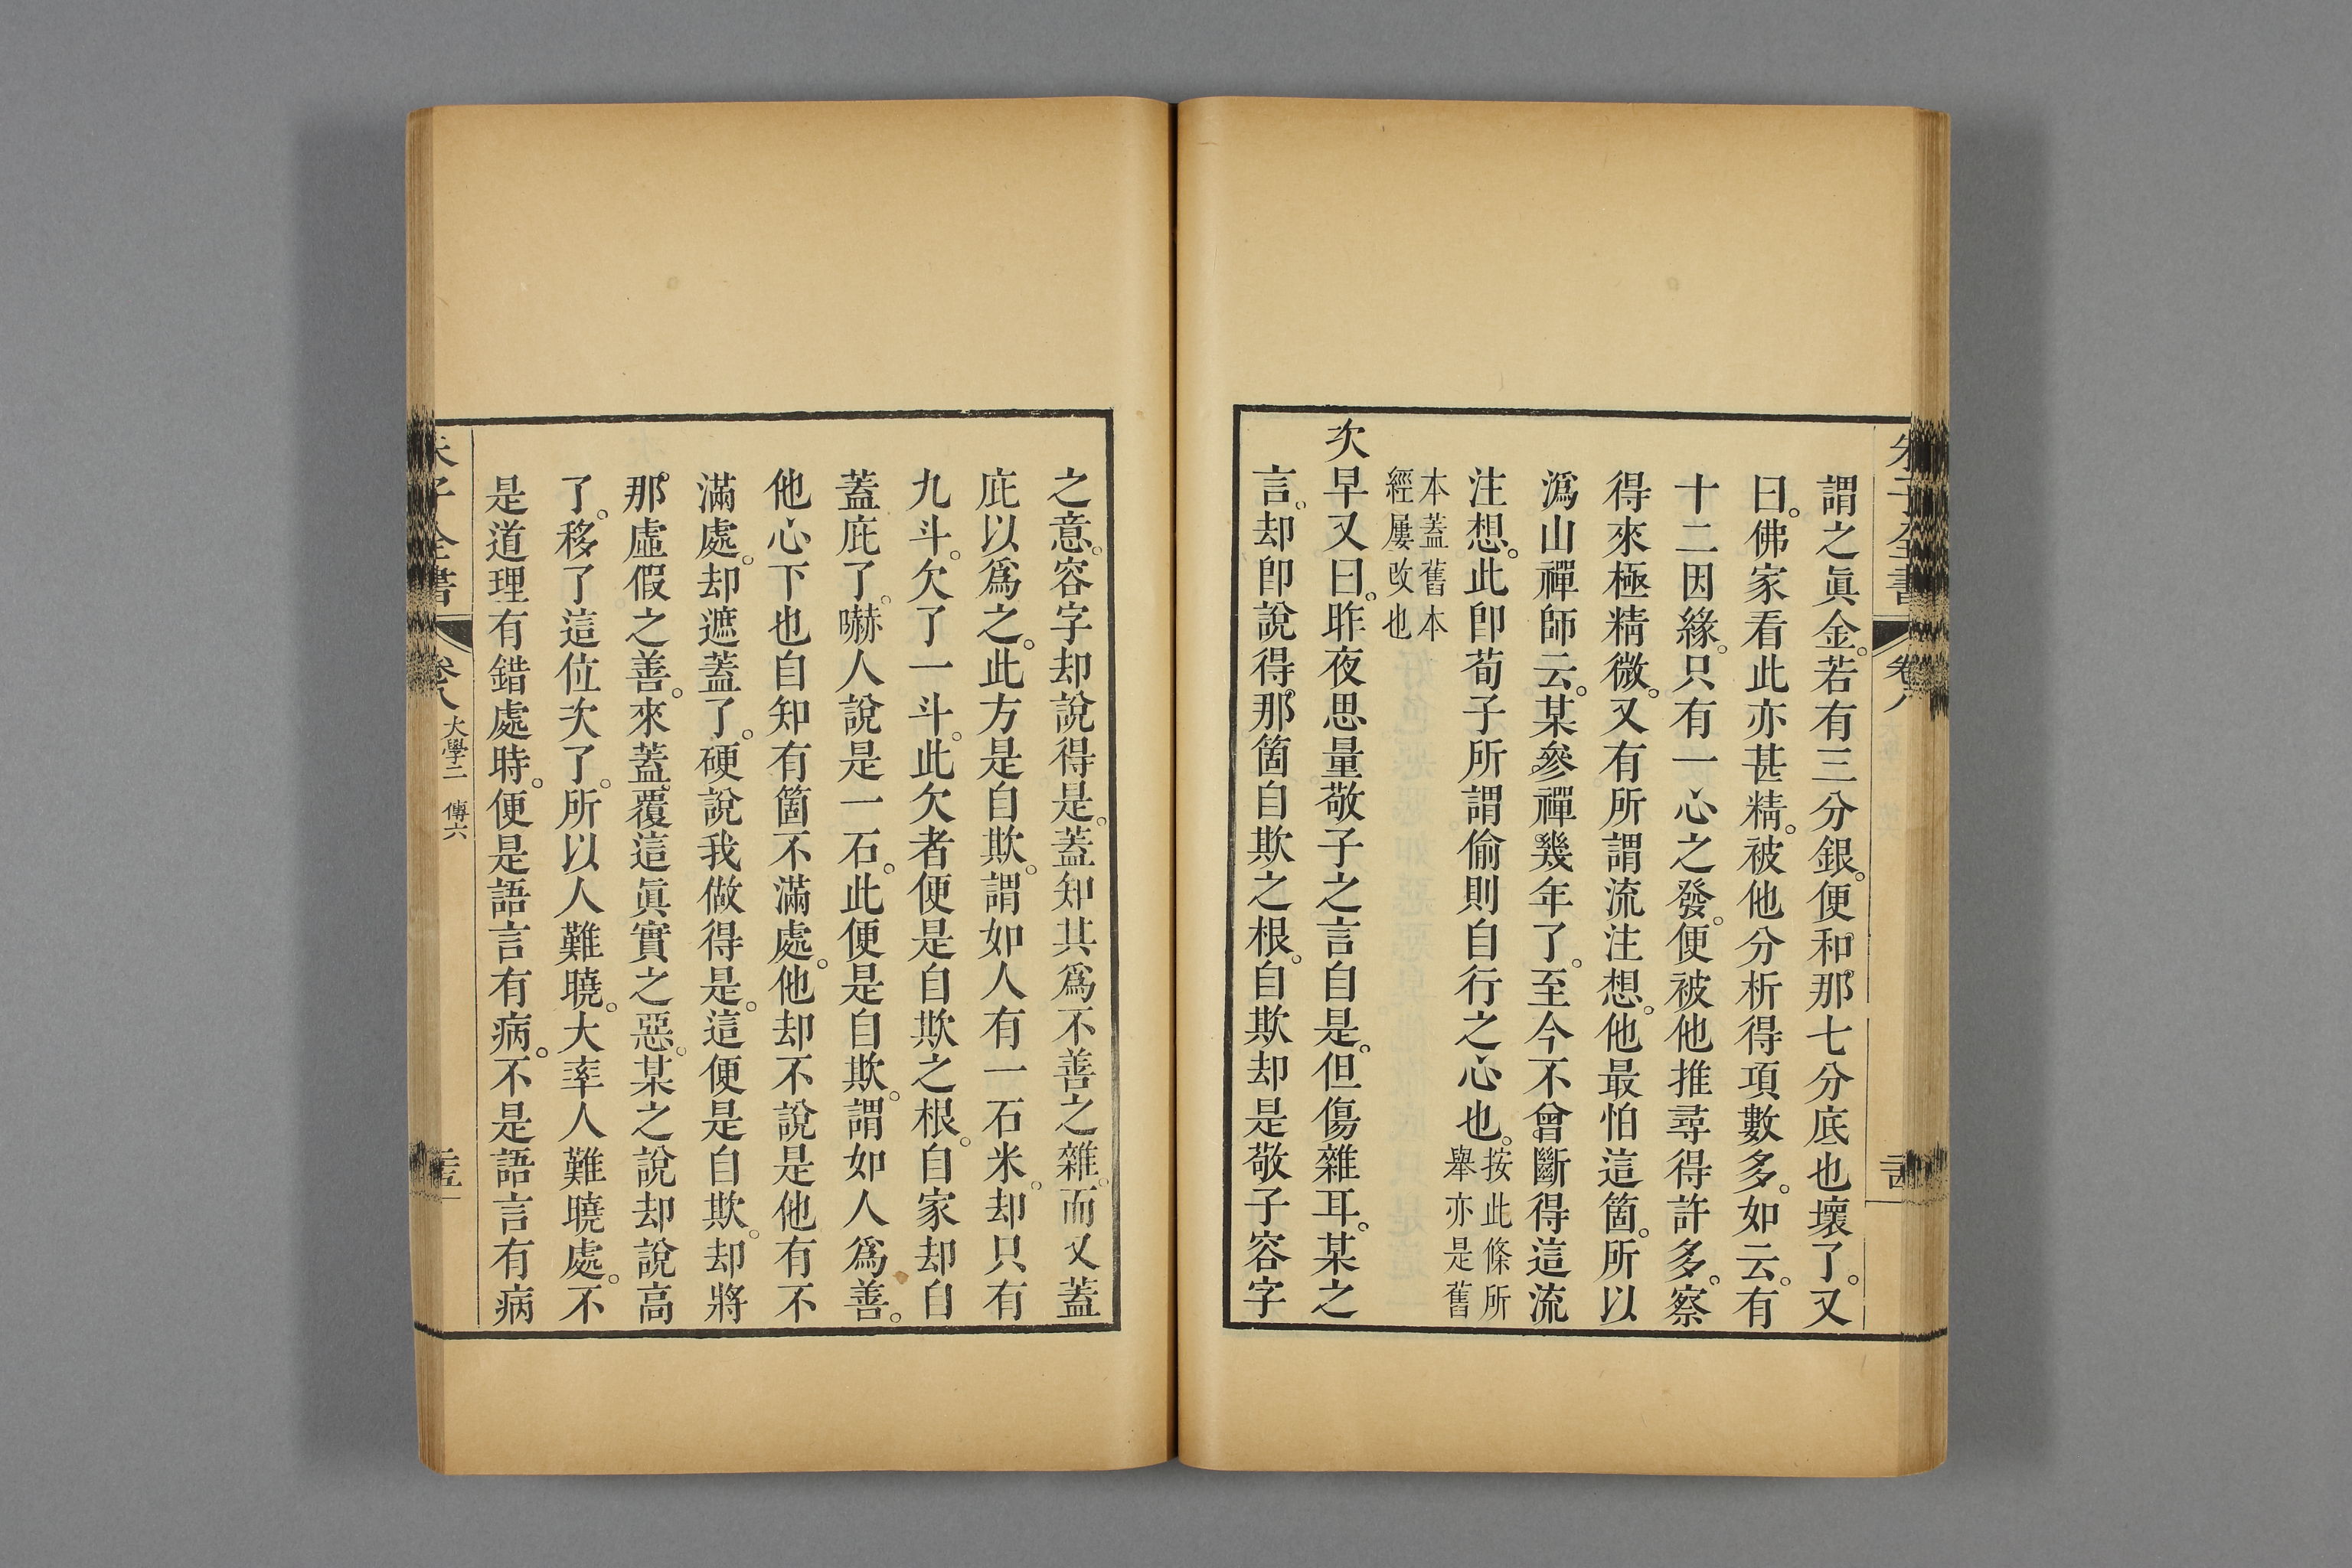 朱子全書 卷八 二十四
謂之眞金。若有三分銀。便和那七分底也壞了。又
曰。佛家看此亦甚精。被他分析得項數多。如云。有
十二因緣。只有一心之發。便被他推尋得許多。察
得來極精微。又有所謂流注想。他最怕這箇。所以
潙山禪師云。某參禪幾年了。至今不曾斷得這流
注想。此卽荀子所謂偷則自行之心也。按此條所
舉亦是舊
本蓋舊本
經屢改也
次早又曰。昨夜思量敬子之言自是。但傷雜耳。某之
言。却卽說得那箇自欺之根。自欺却是敬子容字
之意。容字却說得是。蓋知其爲不善之雜。而又蓋
庇以爲之。此方是自欺。謂如人有一石米。却只有
九斗。欠了一斗。此欠者便是自欺之根。自家却自
蓋庇了。嚇人說是一石。此便是自欺。謂如人爲善。
他心下也自知有箇不滿處。他却不說是他有不
滿處。却遮蓋了。硬說我做得是。這便是自欺。却將
那虛假之善。來蓋覆這眞實之惡。某之說却說高
了。移了這位次了。所以人難曉。大率人難曉處。不
是道理有錯處時。便是語言有病。不是語言有病
朱子全書 卷八 大學二 傳六 二十五